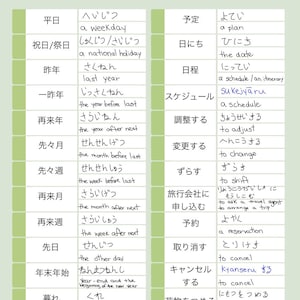 平日
へいじつ
a weekday
祝日/祭日
しゅくじつ/さいじつ
a national holiday
昨年
さくねん
last year
一昨年
いっさくねん
the year before last
再来年
さらいねん
the year after next
先々月
せんせんげつ
the month before last
先々週
せんせんしゅう
the week before last
再来月
さらいげつ
the month after next
再来週
さらいしゅう
the week after next
先日
せんじつ
the other day
年末年始
ねんまつねんし
year-end and the beginning of the new year
暮れ
くれ
予定
よてい
a plan
日にち
ひにち
the date
日程
にってい
a schedule / an itinerary
スケジュール
sukejyūru
a schedule
調整する
ちょうせいする
to adjust
変更する
へんこうする
to change
ずらす
ずらす
to shift
旅行会社に
申し込む
to ask a travel agent
to arrange a trip
予約
よやく
a reservation
取り消す
とりけす
to cancel
キャンセル
する
kyanseru する
to cancel